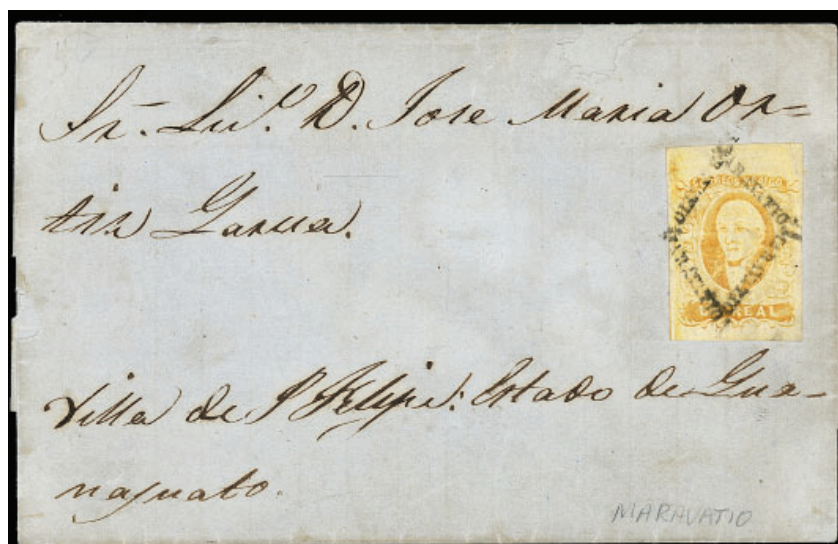 Sr. Lic.º D. Jose Maria Or=
tiz Garcia.
CORREOS MEJICO
UN REAL
Villa de S. Felipe. Estado de Gua-
najuato.
MARAVATIO